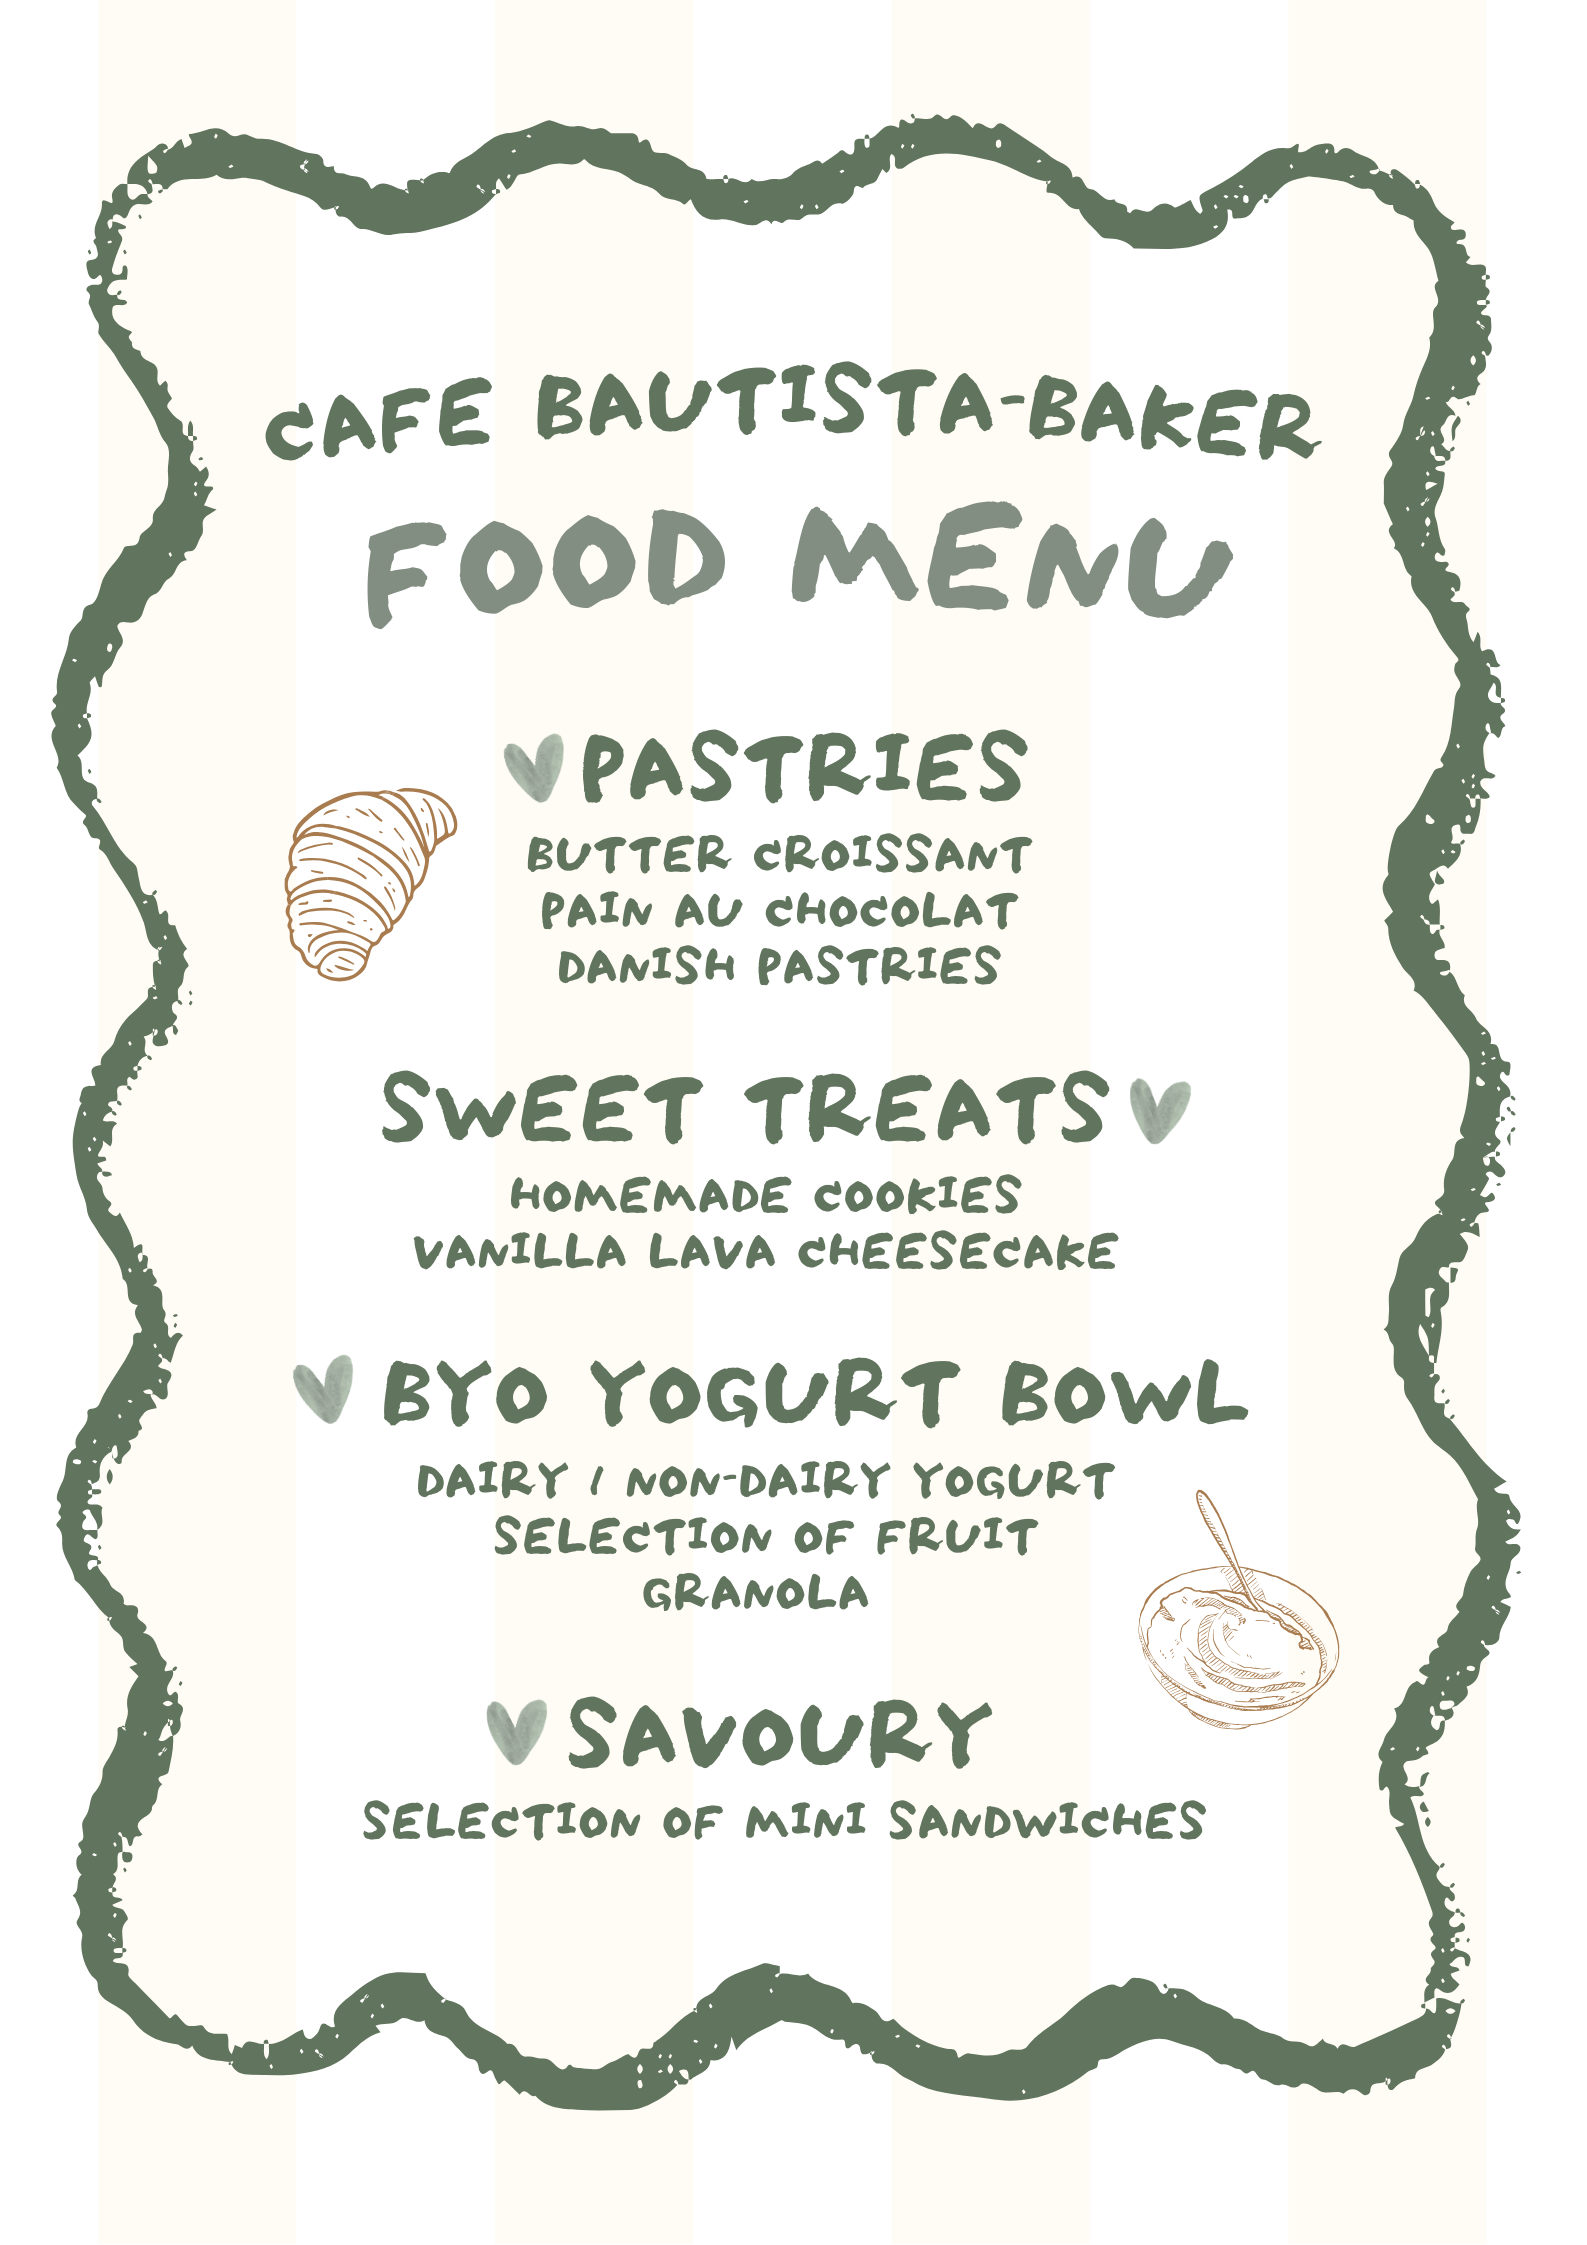 CAFE BAUTISTA-BAKER
FOOD MENU
PASTRIES
BUTTER CROISSANT
PAIN AU CHOCOLAT
DANISH PASTRIES
SWEET TREATS
HOMEMADE COOKIES
VANILLA LAVA CHEESECAKE
BYO YOGURT BOWL
DAIRY / NON-DAIRY YOGURT
SELECTION OF FRUIT
GRANOLA
SAVOURY
SELECTION OF MINI SANDWICHES